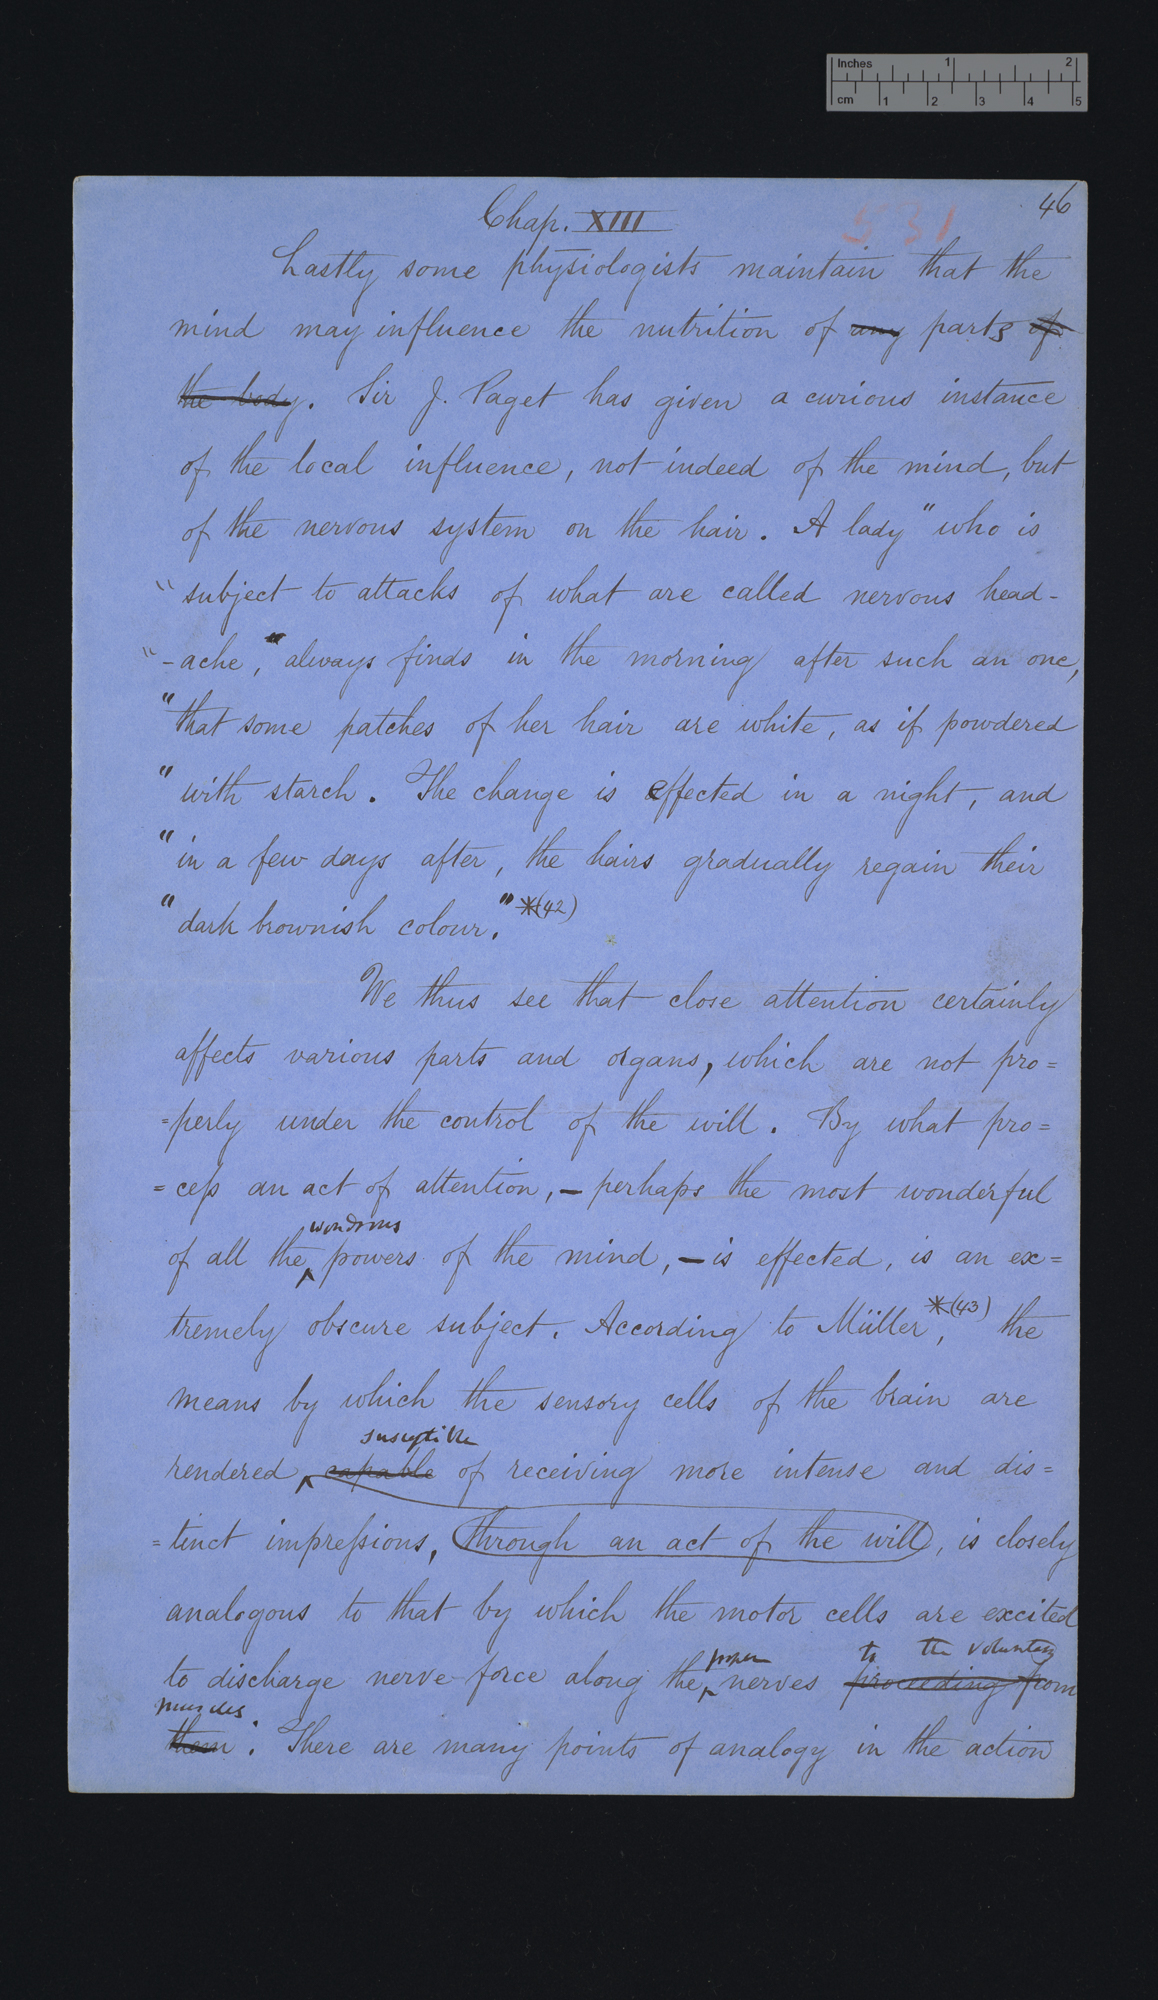 Inches 1 2
cm 1 2 3 4 5
46
Chap. XIII
531
Lastly some physiologists maintain that the
mind may influence the nutrition of any parts of
the body. Sir J. Paget has given a curious instance
of the local influence, not indeed of the mind, but
of the nervous system on the hair. A lady "who is
"subject to attacks of what are called nervous head-
"-ache," always finds in the morning after such an one,
"that some patches of her hair are white, as if powdered
"with starch. The change is effected in a night, and
"in a few days after, the hairs gradually regain their
"dark brownish colour." *(42)
We thus see that close attention certainly
affects various parts and organs, which are not pro=
=perly under the control of the will. By what pro=
=cess an act of attention, — perhaps the most wonderful
wondrous
of all the powers of the mind, — is effected, is an ex=
tremely obscure subject. According to Müller*(43), the
means by which the sensory cells of the brain are
susceptible
rendered capable of receiving more intense and dis=
=tinct impressions, through an act of the will, is closely
analogous to that by which the motor cells are excited
proper to the voluntary
to discharge nerve-force along the nerves proceeding from
muscles
them. There are many points of analogy in the action